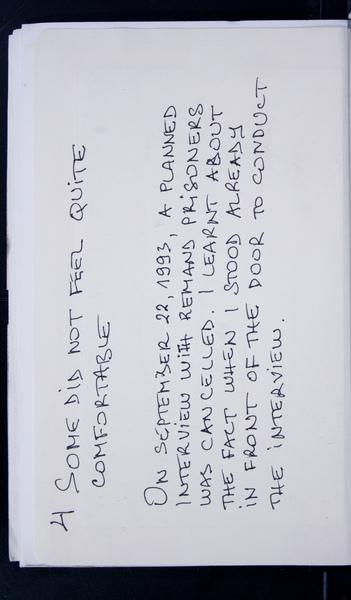 4 SOME DID NOT FEEL QUITE
COMFORTABLE
ON SEPTEMBER 22, 1993, A PLANNED
INTERVIEW WITH REMAND PRISONERS
WAS CANCELLED. I LEARNT ABOUT
THE FACT WHEN I STOOD ALREADY
IN FRONT OF THE DOOR TO CONDUCT
THE INTERVIEW.